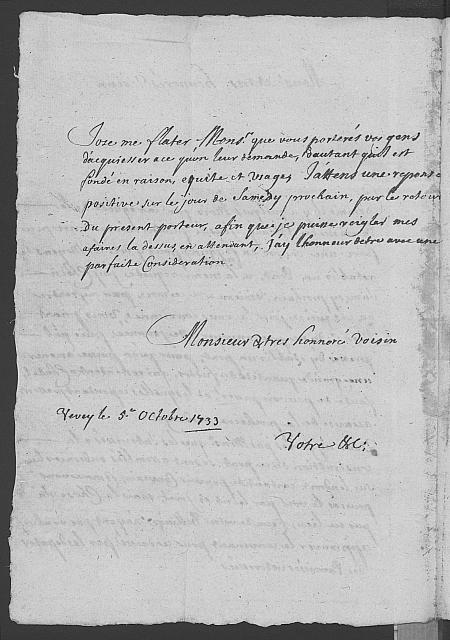 Joze me flater Mons.r que vous porterés vos gens
d'acquiesser a ce qu'on leur demande, d'autant qu'il est
fondé en raison, equité et usages J'attens une reponse
positive sur le jour de Samedy prochain, par le retour
Du present porteur, afin que je puisse reigler mes
afaires la dessus, en attendant, J'ay lhonneur detre avec une
parfaite Consideration
Monsieur & tres honnoré Voisin
Vevey le 5.e Octobre 1733
Votre &c: